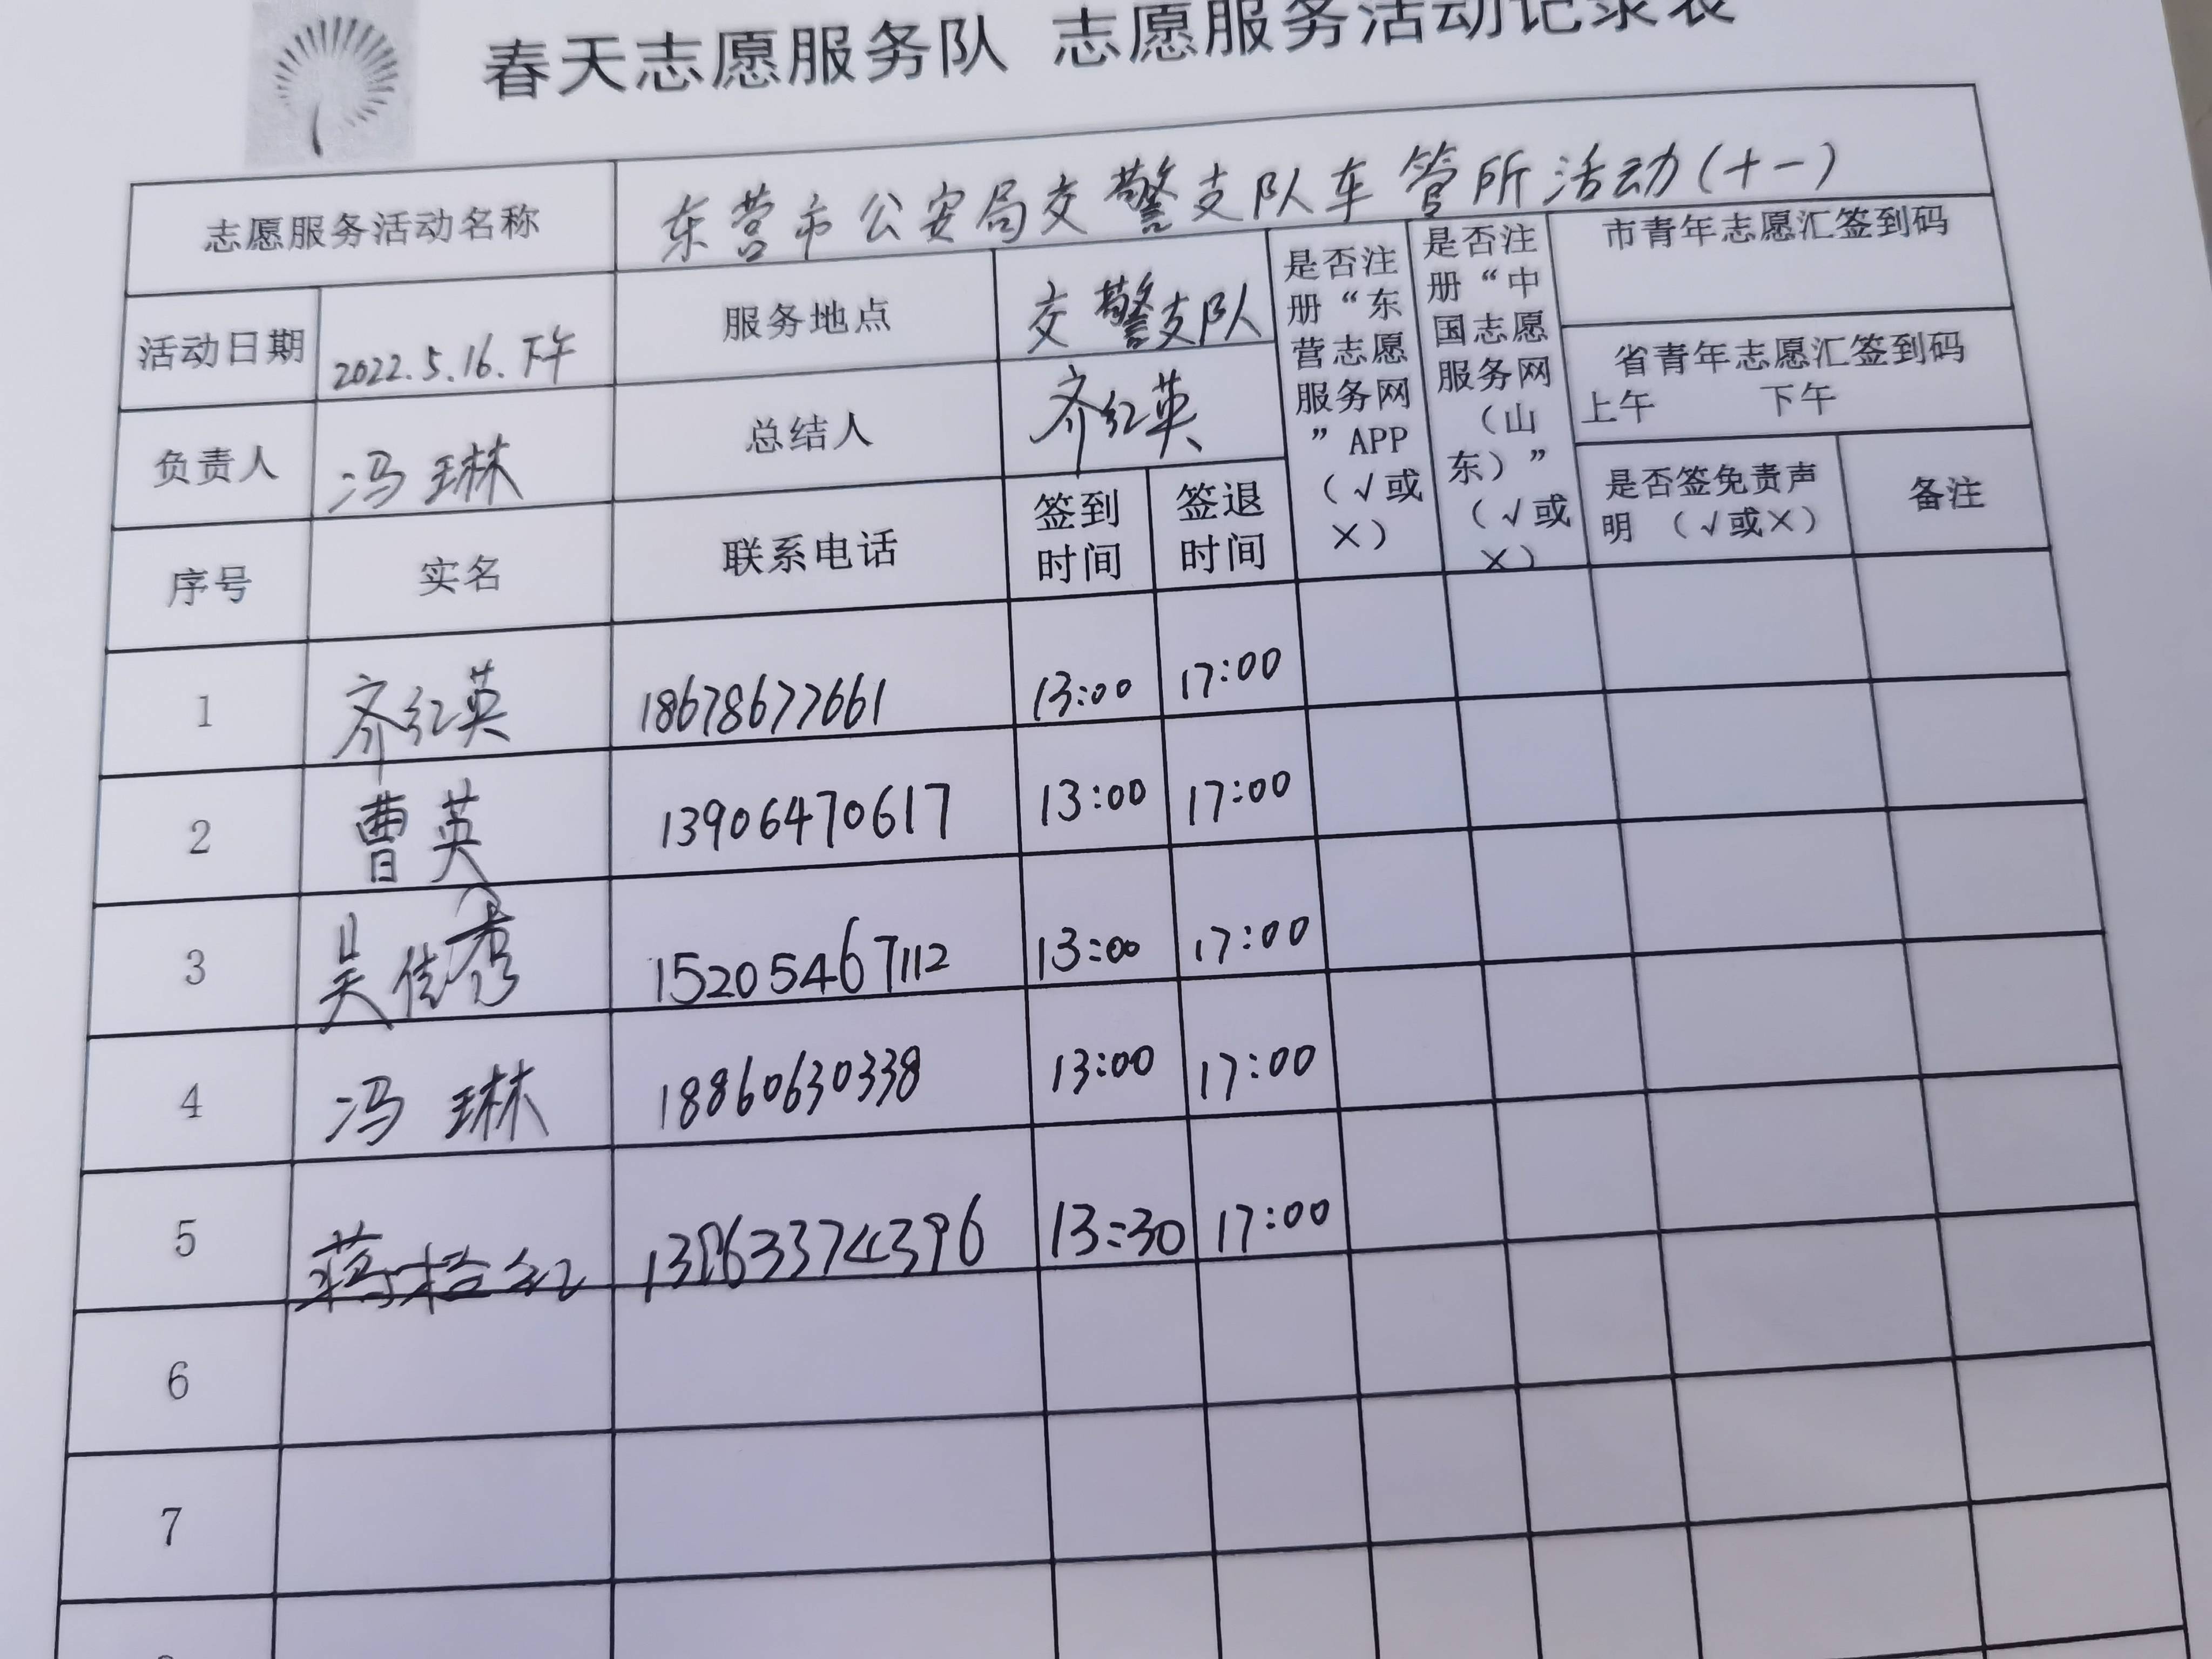 春天志愿服务队 志愿服务活动记录表
志愿服务活动名称 东营市公安局交警支队车管所活动(十一)
活动日期 2022.5.16.下午 服务地点 交警支队
是否注册“东营志愿服务网”APP（√或×）
是否注册“中国志愿服务网（山东）”（√或×）
市青年志愿汇签到码
省青年志愿汇签到码
上午 下午
负责人 冯琳 总结人 齐红英
是否签免责声明（√或×） 备注
序号 实名 联系电话 签到时间 签退时间
1 齐红英 18678677661 13:00 17:00
2 曹英 13906470617 13:00 17:00
3 吴佳秀 15205467112 13:00 17:00
4 冯琳 18860630338 13:00 17:00
5 蒋 红 13:30 17:00
6
7